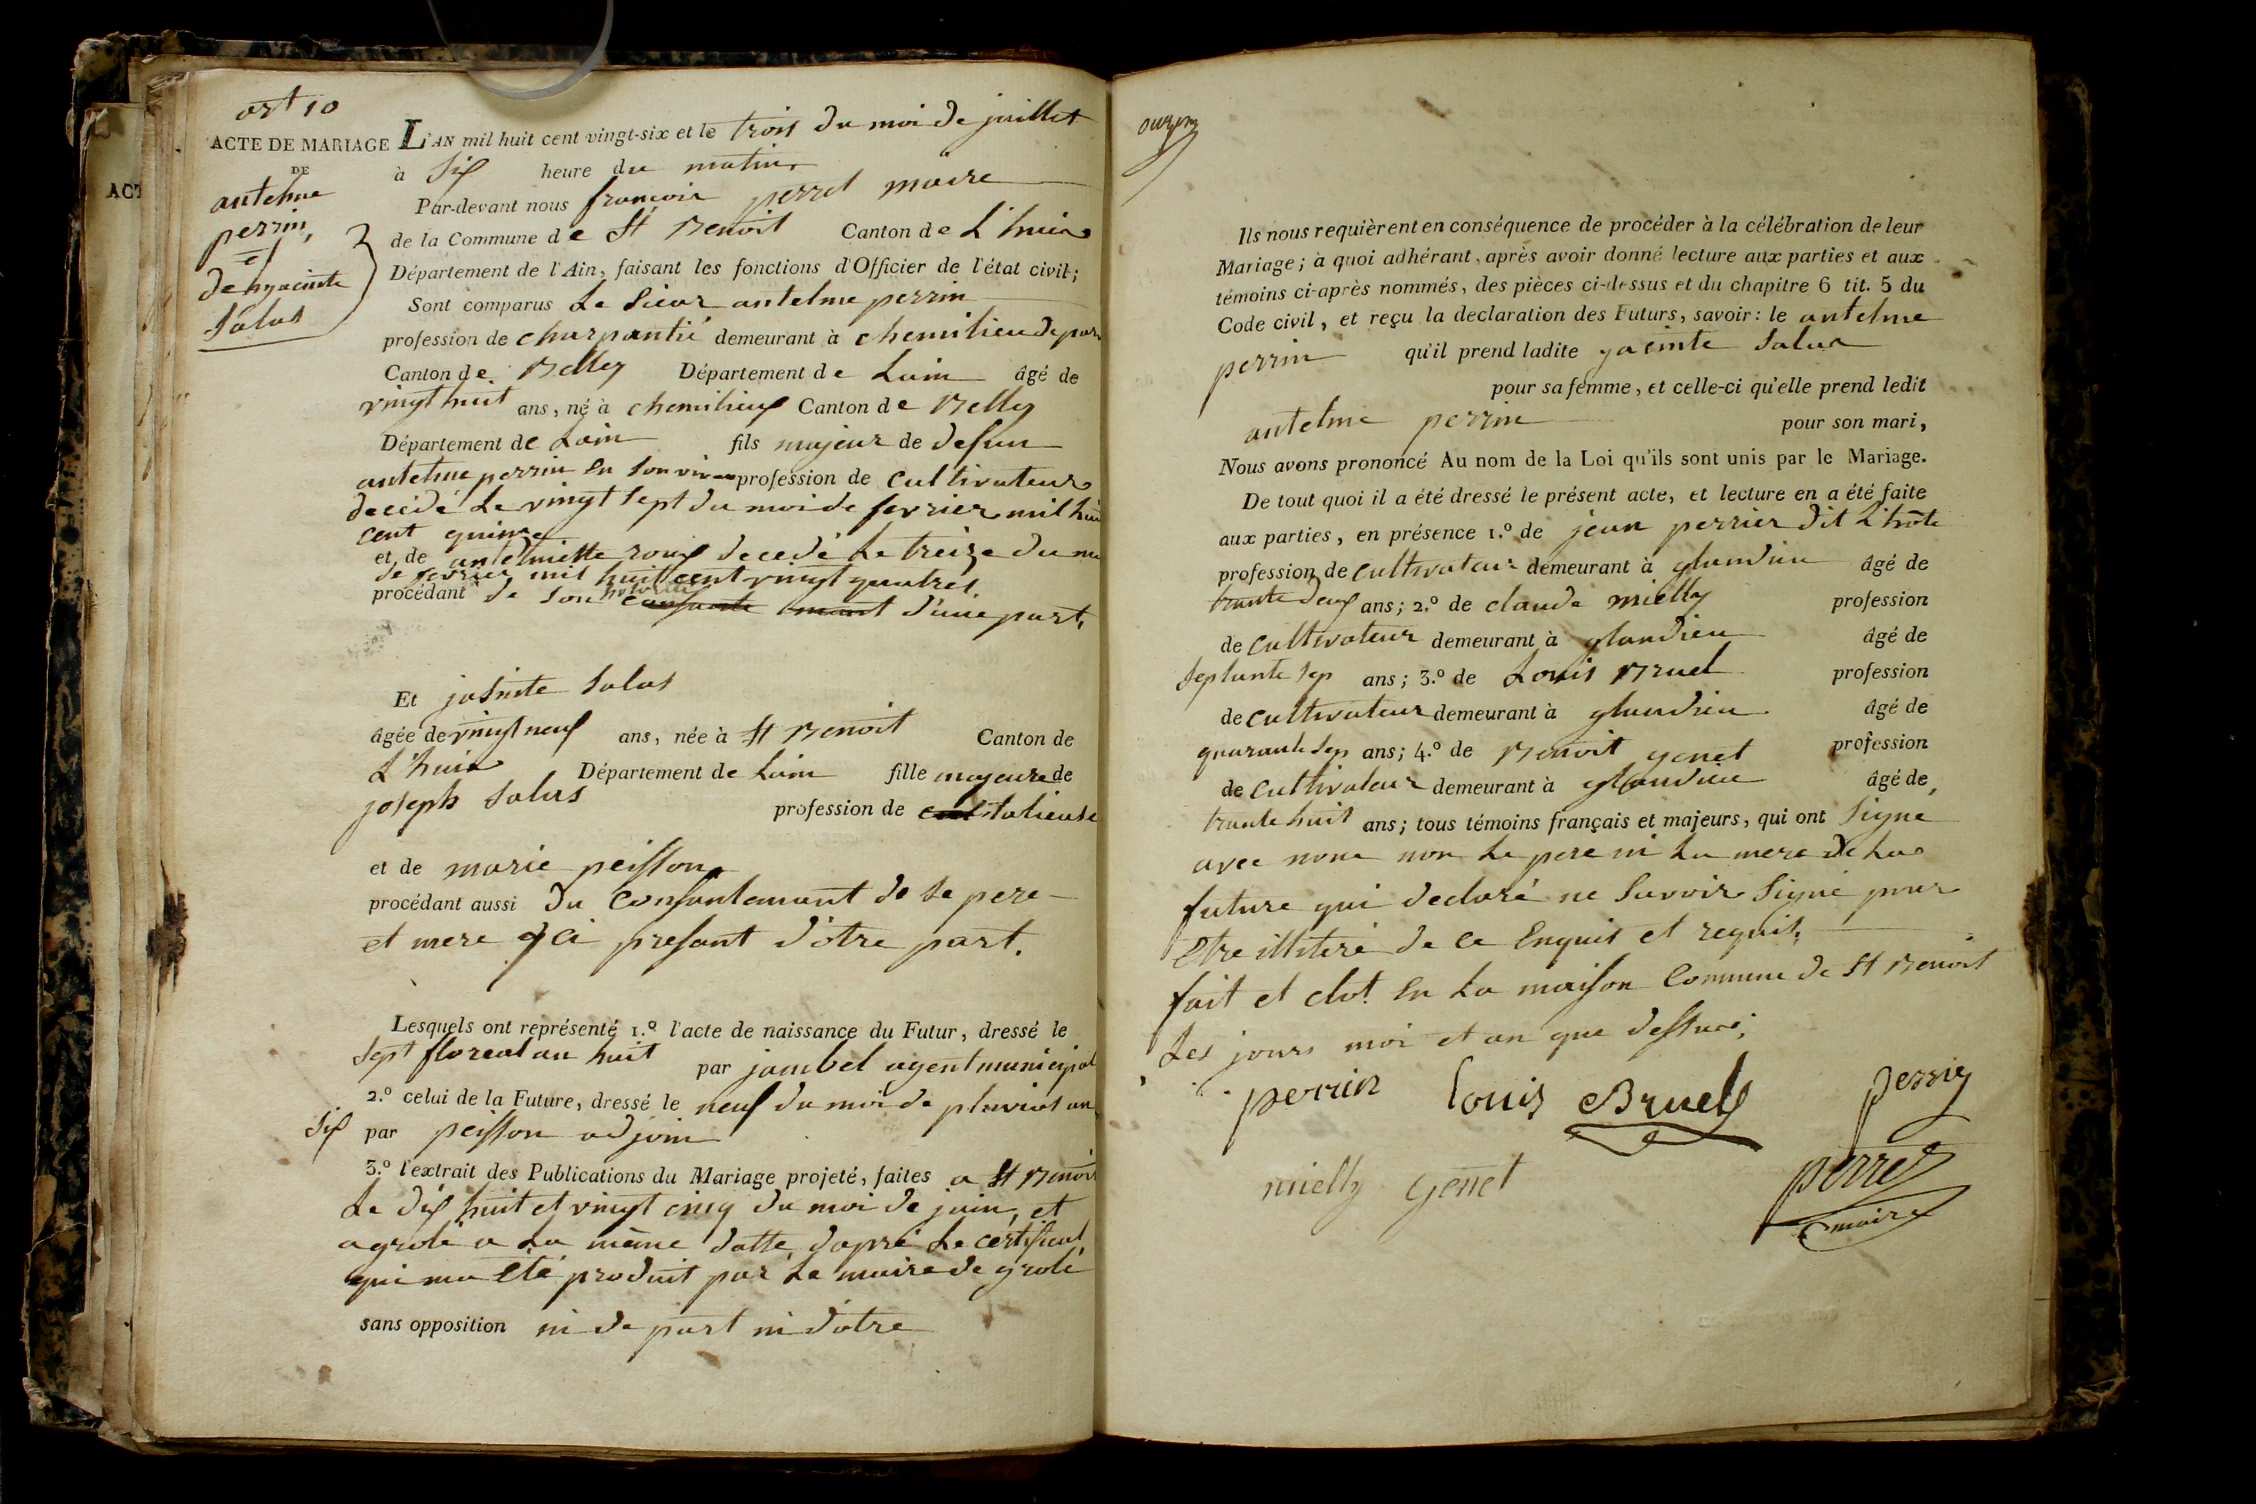 art 10
ACTE DE MARIAGE
DE
antelme
perrin,
et
de hyacinte
Salus
L'AN mil huit cent vingt-six et le trois du moi de juillet
à Six heure du matin
Par-devant nous françois perret maire
de la Commune de St Benoit Canton de L'huis
Département de l'Ain, faisant les fonctions d'Officier de l'état civil;
Sont comparus Le Sieur antelme perrin
profession de charpantié demeurant à chemilieu depar
Canton de Belley Département de Lain âgé de
vingt huit ans, né à chemilieux Canton de Belley
Département de Lain fils majeur de defun
antelme perrin en Son vivan profession de Cultivateur
decedé Le vingt Sept du moi de fevrier mil hui
cent quinze
et de antelmette roux decedé Le treize du moi
de fevrier mil huit cent vingt quatres
procédant de Son d'une part.
Et jasinte Salus
âgée de vingt neuf ans, née à St Benoit Canton de
L'huis Département de Lain fille majeure de
joseph Salus profession de
et de marie peisson
procédant aussi du Consantemant de Se pere
et mere y Ci presant d'otre part.
Lesquels ont représenté 1.º l'acte de naissance du Futur, dressé le
Sept floreal an huit par jambel agent municipal
2.º celui de la Future, dressé le neuf du moi de pluvios an
Six par peisson adjoin
3.º l'extrait des Publications du Mariage projeté, faites a St Benoit
Le dix huit et vingt cinq du moi de juin, et
a grolé a La même datte, dapré Le certificat
qui ma Eté produit par Le maire de grolé
sans opposition ni de part ni d'otre
ACT
Ils nous requièrent en conséquence de procéder à la célébration de leur
Mariage; à quoi adhérant, après avoir donné lecture aux parties et aux
témoins ci-après nommés, des pièces ci-dessus et du chapitre 6 tit. 5 du
Code civil, et reçu la declaration des Futurs, savoir: le antelme
perrin qu'il prend ladite yacinte Salus
pour sa femme, et celle-ci qu'elle prend ledit
antelme perrin pour son mari,
Nous avons prononcé Au nom de la Loi qu'ils sont unis par le Mariage.
De tout quoi il a été dressé le présent acte, et lecture en a été faite
aux parties, en présence 1.º de jean perrier dit L'hôte
profession de Cultivateur demeurant à glandieu âgé de
trante deux ans; 2.º de claude mielly profession
de Cultivateur demeurant à glandieu âgé de
Septante Sep ans; 3.º de Louis Bruel profession
de Cultivateur demeurant à glandieu âgé de
quarante Sep ans; 4.º de Benoit genet profession
de Cultivateur demeurant à glandieu âgé de
trante huit ans; tous témoins français et majeurs, qui ont Signé
avec nous non Le pere ni La mere de La
future qui declaré ne Savoir Signé pour
Etre illiteré de Ce Enquis et requit,
fait et clot En La maison Commune de St Benoit
Les jours moi et an que dessus,
perrin Louis Bruel perrier
mielly Genet perret
maire